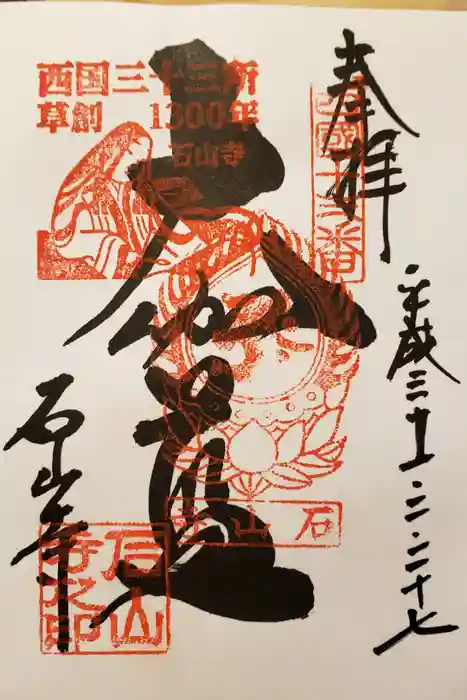 奉拝
西国十三番
平成三十一・二・二十七
大伽藍
石山寺
西国三十三所
草創 1300年
石山寺
石山寺
石山寺之印